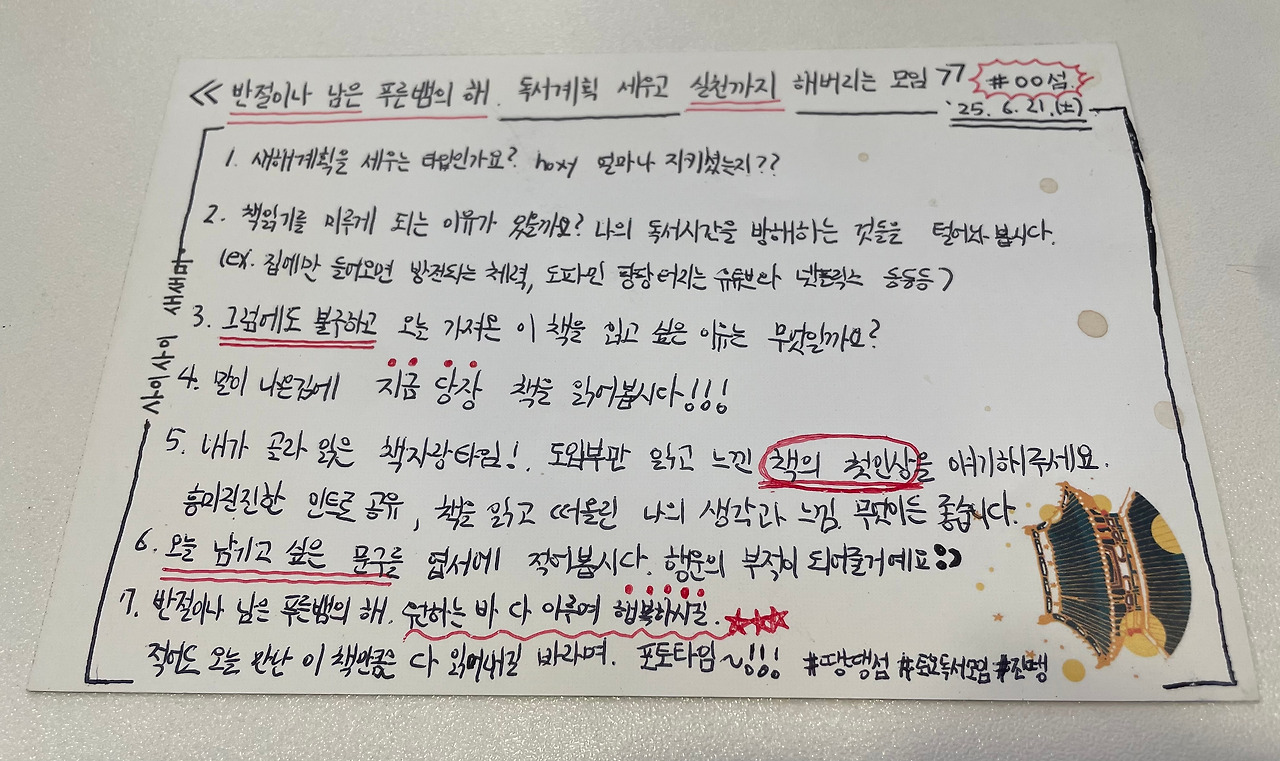 << 반절이나 남은 푸른뱀의 해. 독서계획 세우고 실천까지 해버리는 모임 >> #00섬
'25. 6. 21.(土)
1. 새해계획을 세우는 타입인가요? hoxy 얼마나 지키셨는지??
2. 책읽기를 미루게 되는 이유가 있을까요? 나의 독서시간을 방해하는 것들을 털어놔 봅시다.
(ex. 집에만 들어오면 방전되는 체력, 도파민 팡팡 터지는 유튜브와 넷플릭스 등등등)
3. 그럼에도 불구하고 오늘 가져온 이 책을 읽고 싶은 이유는 무엇일까요?
4. 말이 나온김에 지금 당장 책을 읽어봅시다!!!
5. 내가 골라 읽은 책자랑타임! 도입부만 읽고 느낀 책의 첫인상을 얘기해주세요.
흥미진진한 인트로 공유, 책을 읽고 떠올린 나의 생각과 느낌. 무엇이든 좋습니다.
6. 오늘 남기고 싶은 문구를 엽서에 적어봅시다. 행운의 부적이 되어줄거예요:)
7. 반절이나 남은 푸른뱀의 해. 원하는 바 다 이루며 행복하시길.
적어도 오늘 만난 이 책만큼은 다 읽어내길 바라며. 포토타임~!!! #땡땡섬 #토요독서모임 #진땡
사이사이 새새마